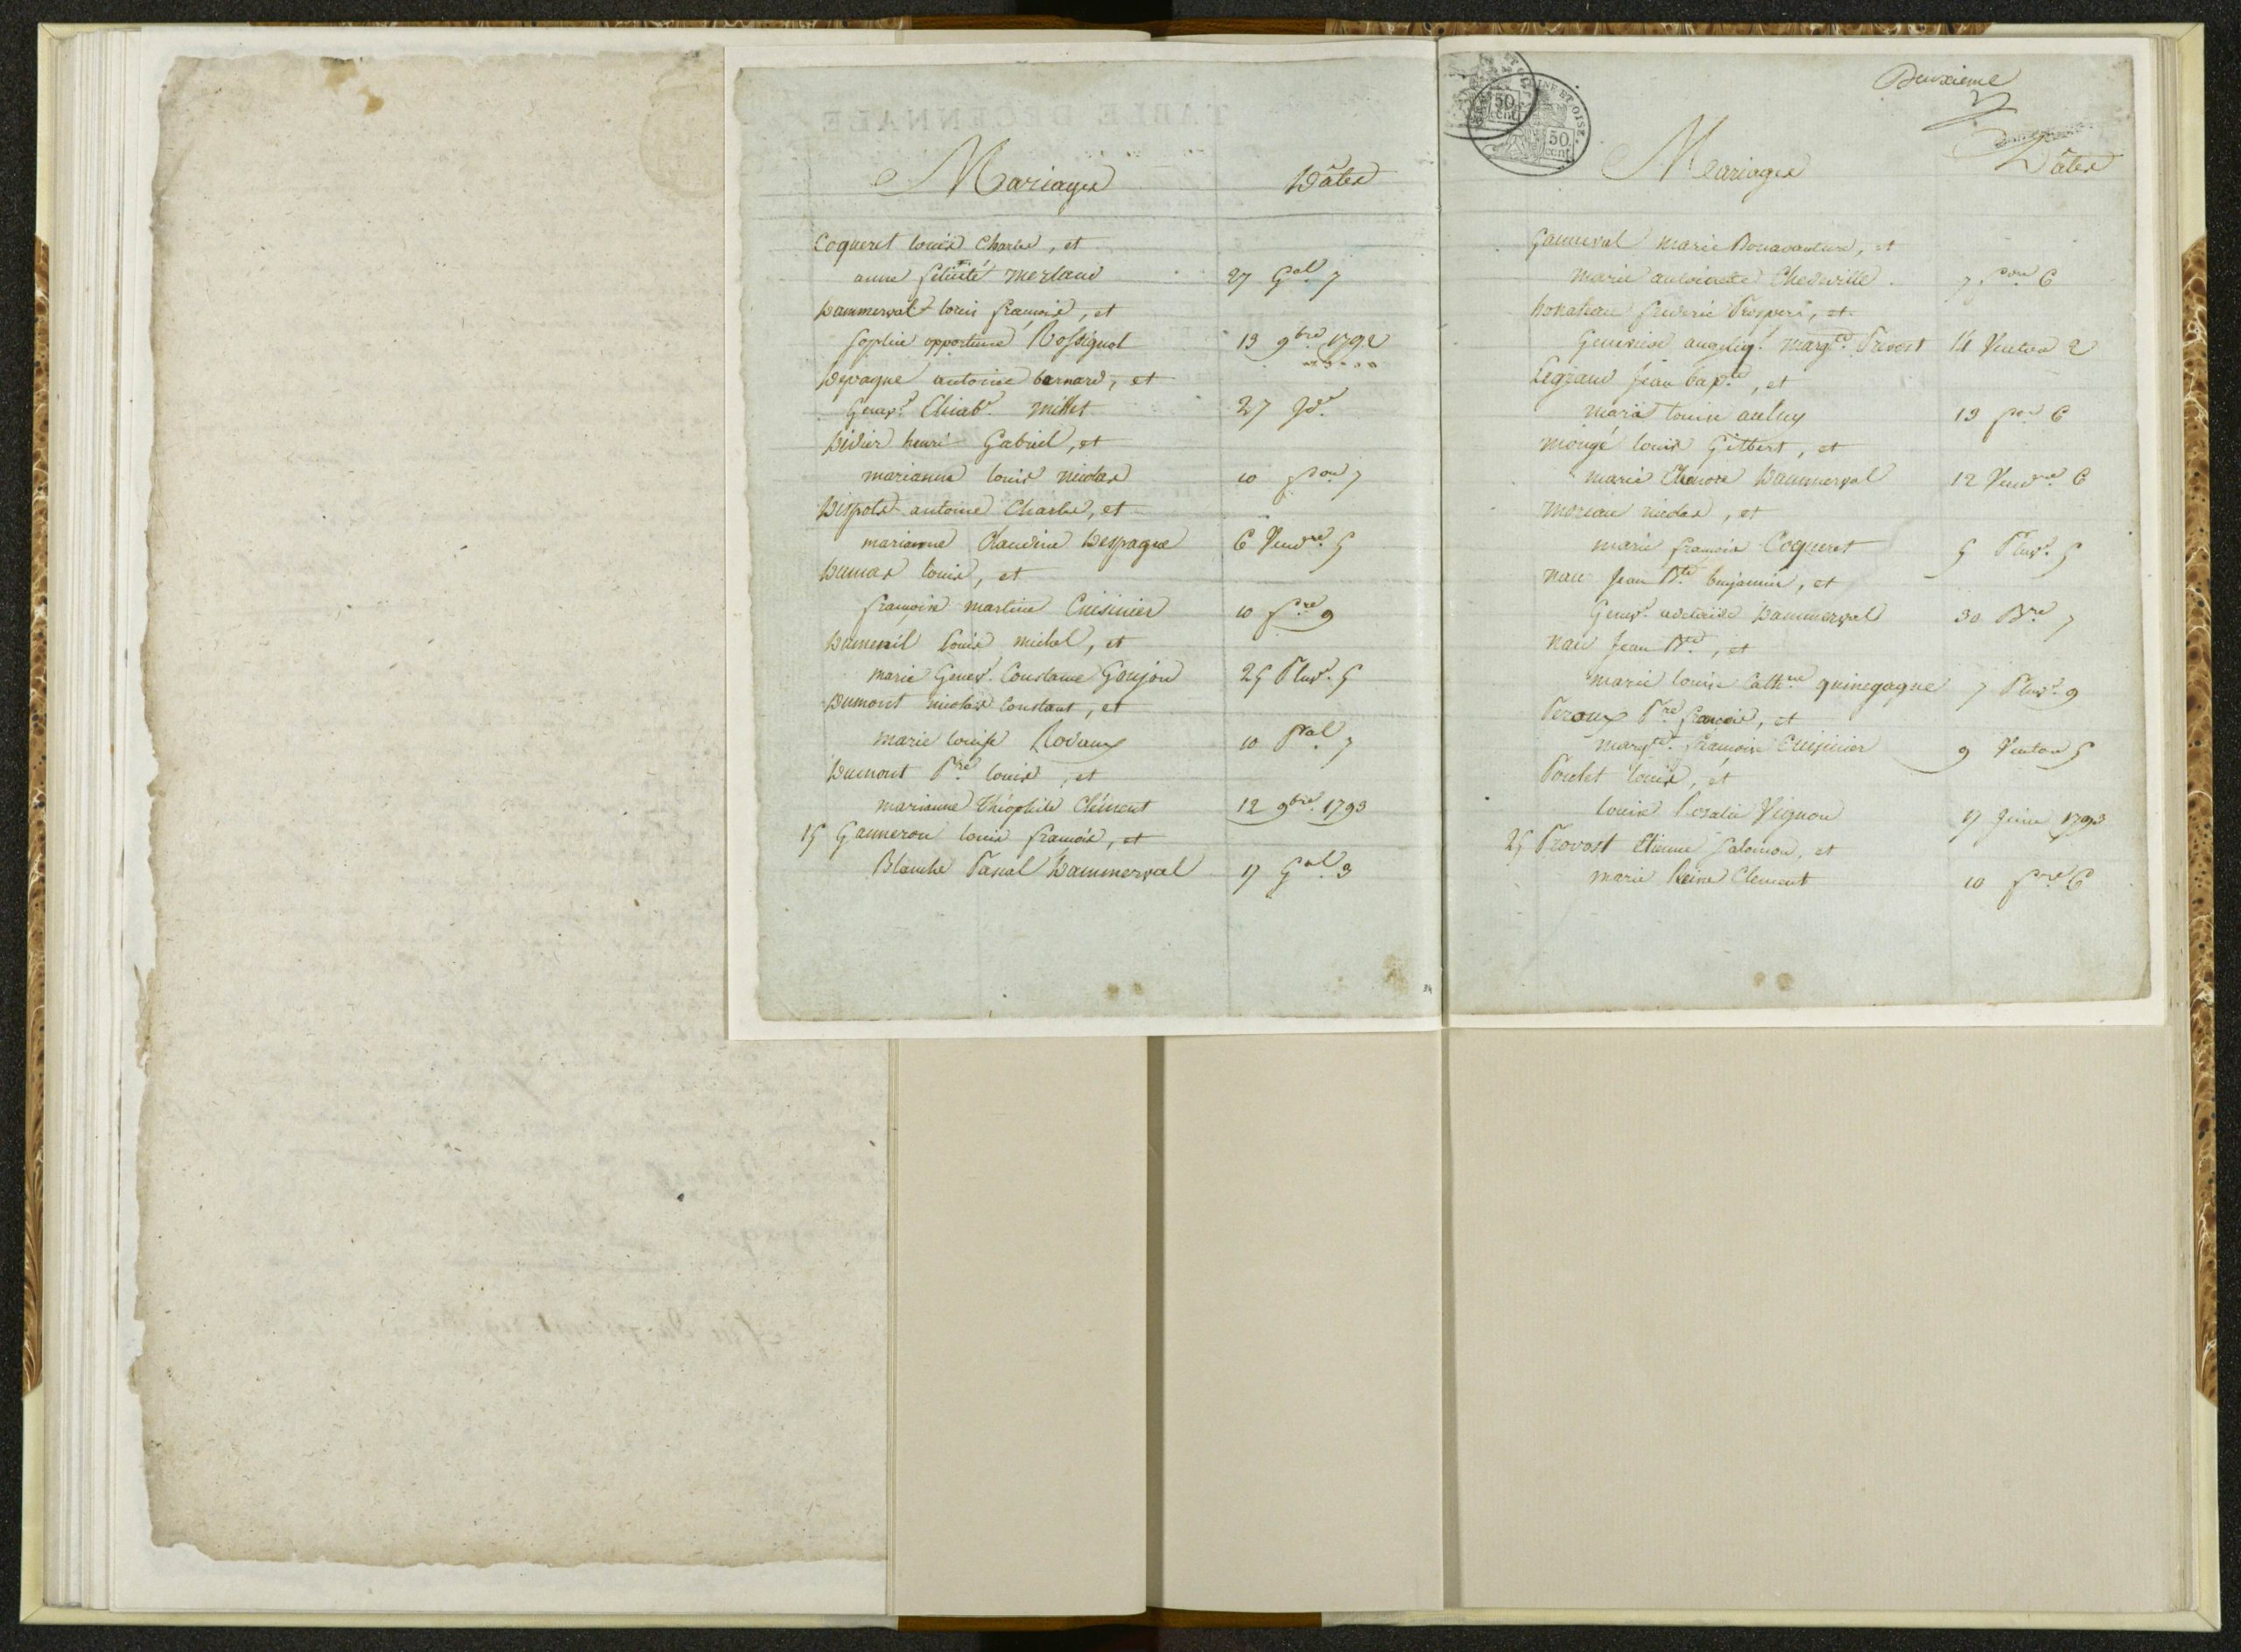 Mariages Dâtes
Coqueret louis Charles, et
anne félicité merland 27 Gal. 7
Dammerval louis françois, et
Sophie opportune Rossignol 13 9bre 1792
Despagne antoine bernard, et
Genev.e Elisab.e millet 27 Jd.
Didier henri Gabriel, et
marianne louis nicolas 10 fon 7
Dispots antoine Charles, et
marianne Claudine Despagne 6 Vendre. 5
Dumas louis, et
françoise martine Cuisinier 10 fre 9
Dumenil louis michel, et
marie Genev.e Constance Goujon 25 Pluv.e 5
Dumont nicolas Constant, et
marie louise Rodaux 10 Pral 7
Dumont Pre. louis, et
marianne théophile Clément 12 9bre. 1793
15 Ganneron louis françois, et
Blanche Pascal Dammerval 17 Gal. 3
Deuxieme
SEINE ET OISE.
50 cent.
50 cent.
Mariages Dâtes
marie Bonavanture, et
marie antoinette Chedeville. 7 6
frederic Prosper, et
Genevieve angeliq.e margte. Prevost 14 Ventose 2
Legrand Jean bapte., et
marie louise 13 6
mongé louis Gilbert, et
marie Eleonore Dammerval 12 Vendre 6
moreau nicolas, et
marie françoise Coqueret 5 Pluv.e 5
nau Jean Bte. benjamin, et
Genev.e adelaïde Dammerval 30 Bre 7
nau Jean Bte., et
marie louise Cathne quinegagne 7 Pluv.e 9
Peroux Pre françois, et
margte. françoise Cuisinier 9 Ventose 5
louis, et
louise Rosalie Vignon 17 Juin 1793
25 Provost Etienne Salomon, et
marie Reine Clement 10 fre 6